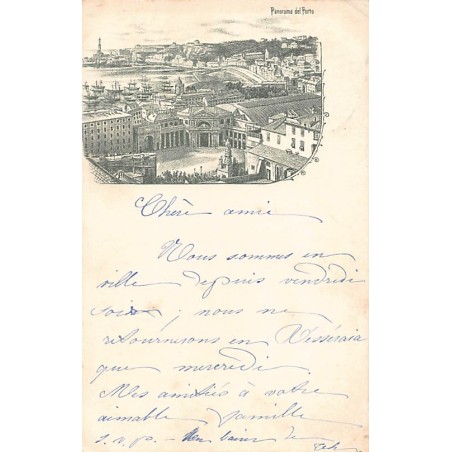 Panorama del Porto
Chère amie
Nous sommes en
ville depuis vendredi
soir ; nous ne
retournerons en
que mercredi.
Mes amitiés à votre
aimable famille
s.v.p. – Un baiser de